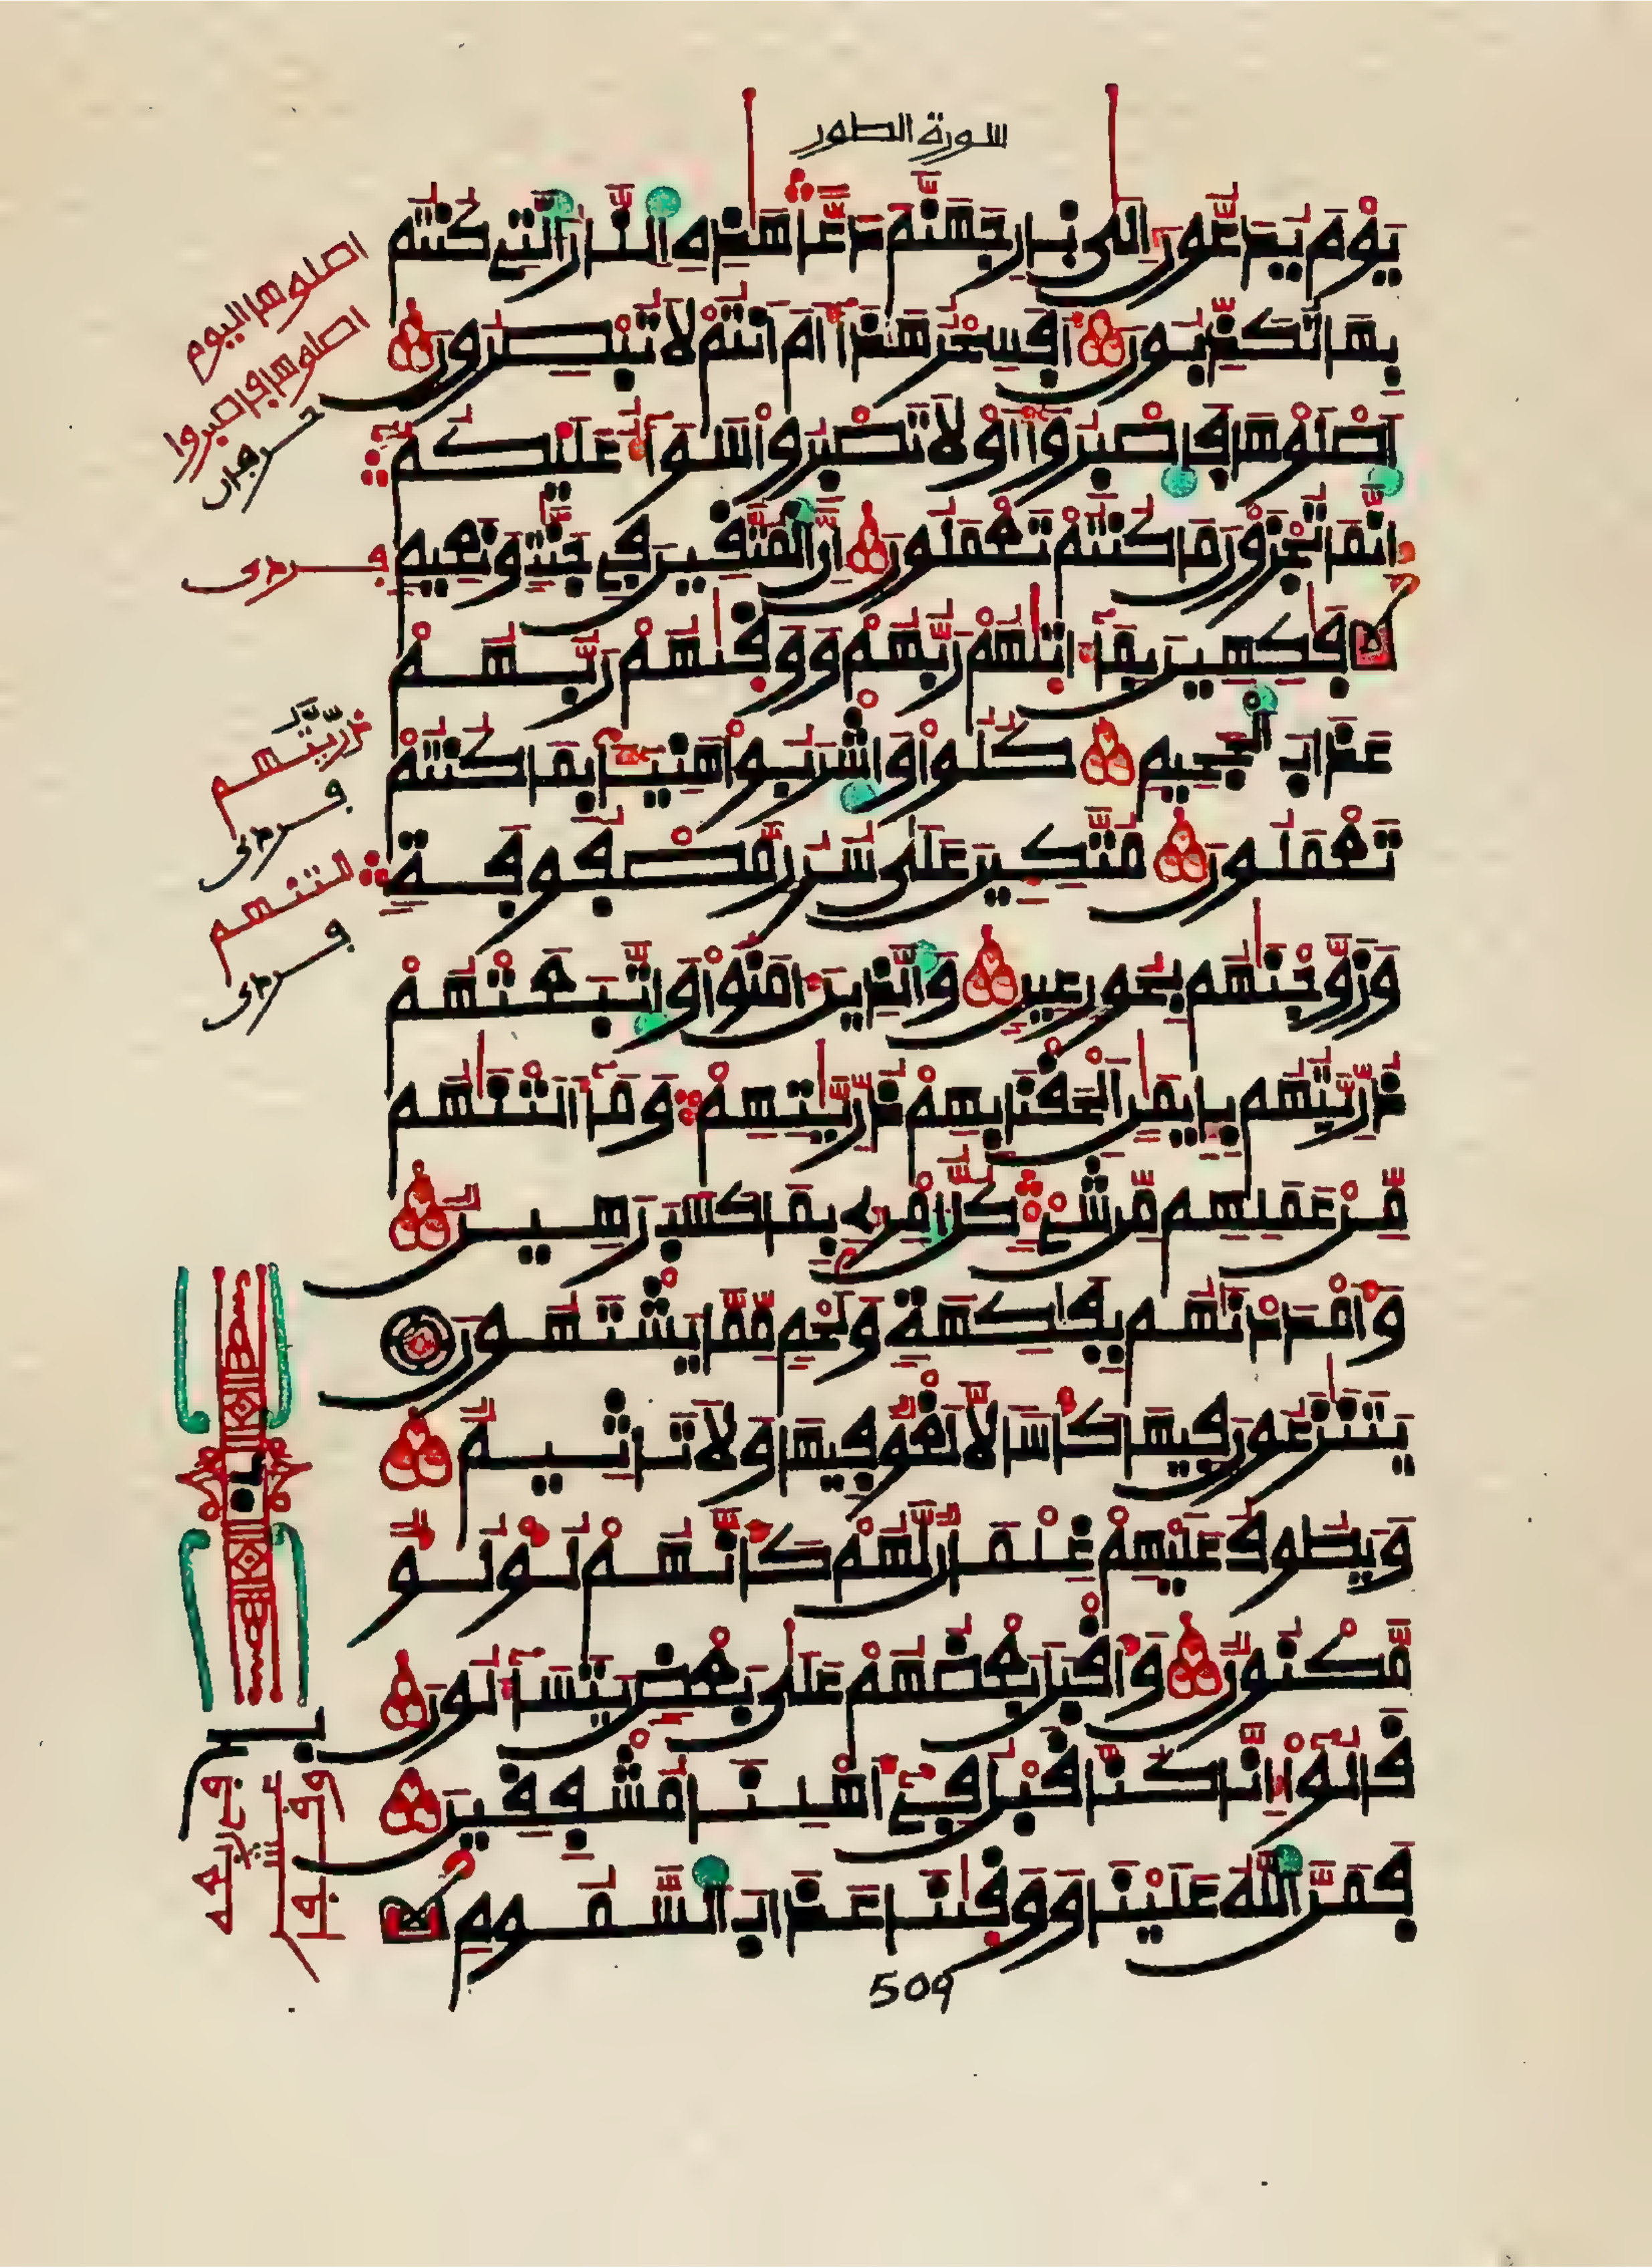 سورة الطور
يَوْمَ يُدَعُّونَ إِلَىٰ نَارِ جَهَنَّمَ دَعًّا هَٰذِهِ النَّارُ الَّتِي كُنتُم
بِهَا تُكَذِّبُونَ أَفَسِحْرٌ هَٰذَا أَمْ أَنتُمْ لَا تُبْصِرُونَ
اصْلَوْهَا فَاصْبِرُوا أَوْ لَا تَصْبِرُوا سَوَاءٌ عَلَيْكُمْ
إِنَّمَا تُجْزَوْنَ مَا كُنتُمْ تَعْمَلُونَ إِنَّ الْمُتَّقِينَ فِي جَنَّٰتٍ وَنَعِيمٍ
فَٰكِهِينَ بِمَا ءَاتَىٰهُمْ رَبُّهُمْ وَوَقَىٰهُمْ رَبُّهُمْ
عَذَابَ الْجَحِيمِ كُلُوا وَاشْرَبُوا هَنِيئًا بِمَا كُنتُمْ
تَعْمَلُونَ مُتَّكِئِينَ عَلَىٰ سُرُرٍ مَّصْفُوفَةٍ
وَزَوَّجْنَٰهُم بِحُورٍ عِينٍ وَالَّذِينَ ءَامَنُوا وَاتَّبَعَتْهُمْ
ذُرِّيَّتُهُم بِإِيمَٰنٍ أَلْحَقْنَا بِهِمْ ذُرِّيَّٰتِهِمْ وَمَا أَلَتْنَٰهُم
مِّنْ عَمَلِهِم مِّن شَيْءٍ كُلُّ امْرِئٍ بِمَا كَسَبَ رَهِينٌ
وَأَمْدَدْنَٰهُم بِفَٰكِهَةٍ وَلَحْمٍ مِّمَّا يَشْتَهُونَ
يَتَنَٰزَعُونَ فِيهَا كَأْسًا لَّا لَغْوٌ فِيهَا وَلَا تَأْثِيمٌ
وَيَطُوفُ عَلَيْهِمْ غِلْمَانٌ لَّهُمْ كَأَنَّهُمْ لُؤْلُؤٌ
مَّكْنُونٌ وَأَقْبَلَ بَعْضُهُمْ عَلَىٰ بَعْضٍ يَتَسَاءَلُونَ
قَالُوا إِنَّا كُنَّا قَبْلُ فِي أَهْلِنَا مُشْفِقِينَ
فَمَنَّ اللَّهُ عَلَيْنَا وَوَقَىٰنَا عَذَابَ السَّمُومِ
509
اصلوها اليوم
اصلوها فاصبروا
ذُرِّيَّتُهُم
التنهم